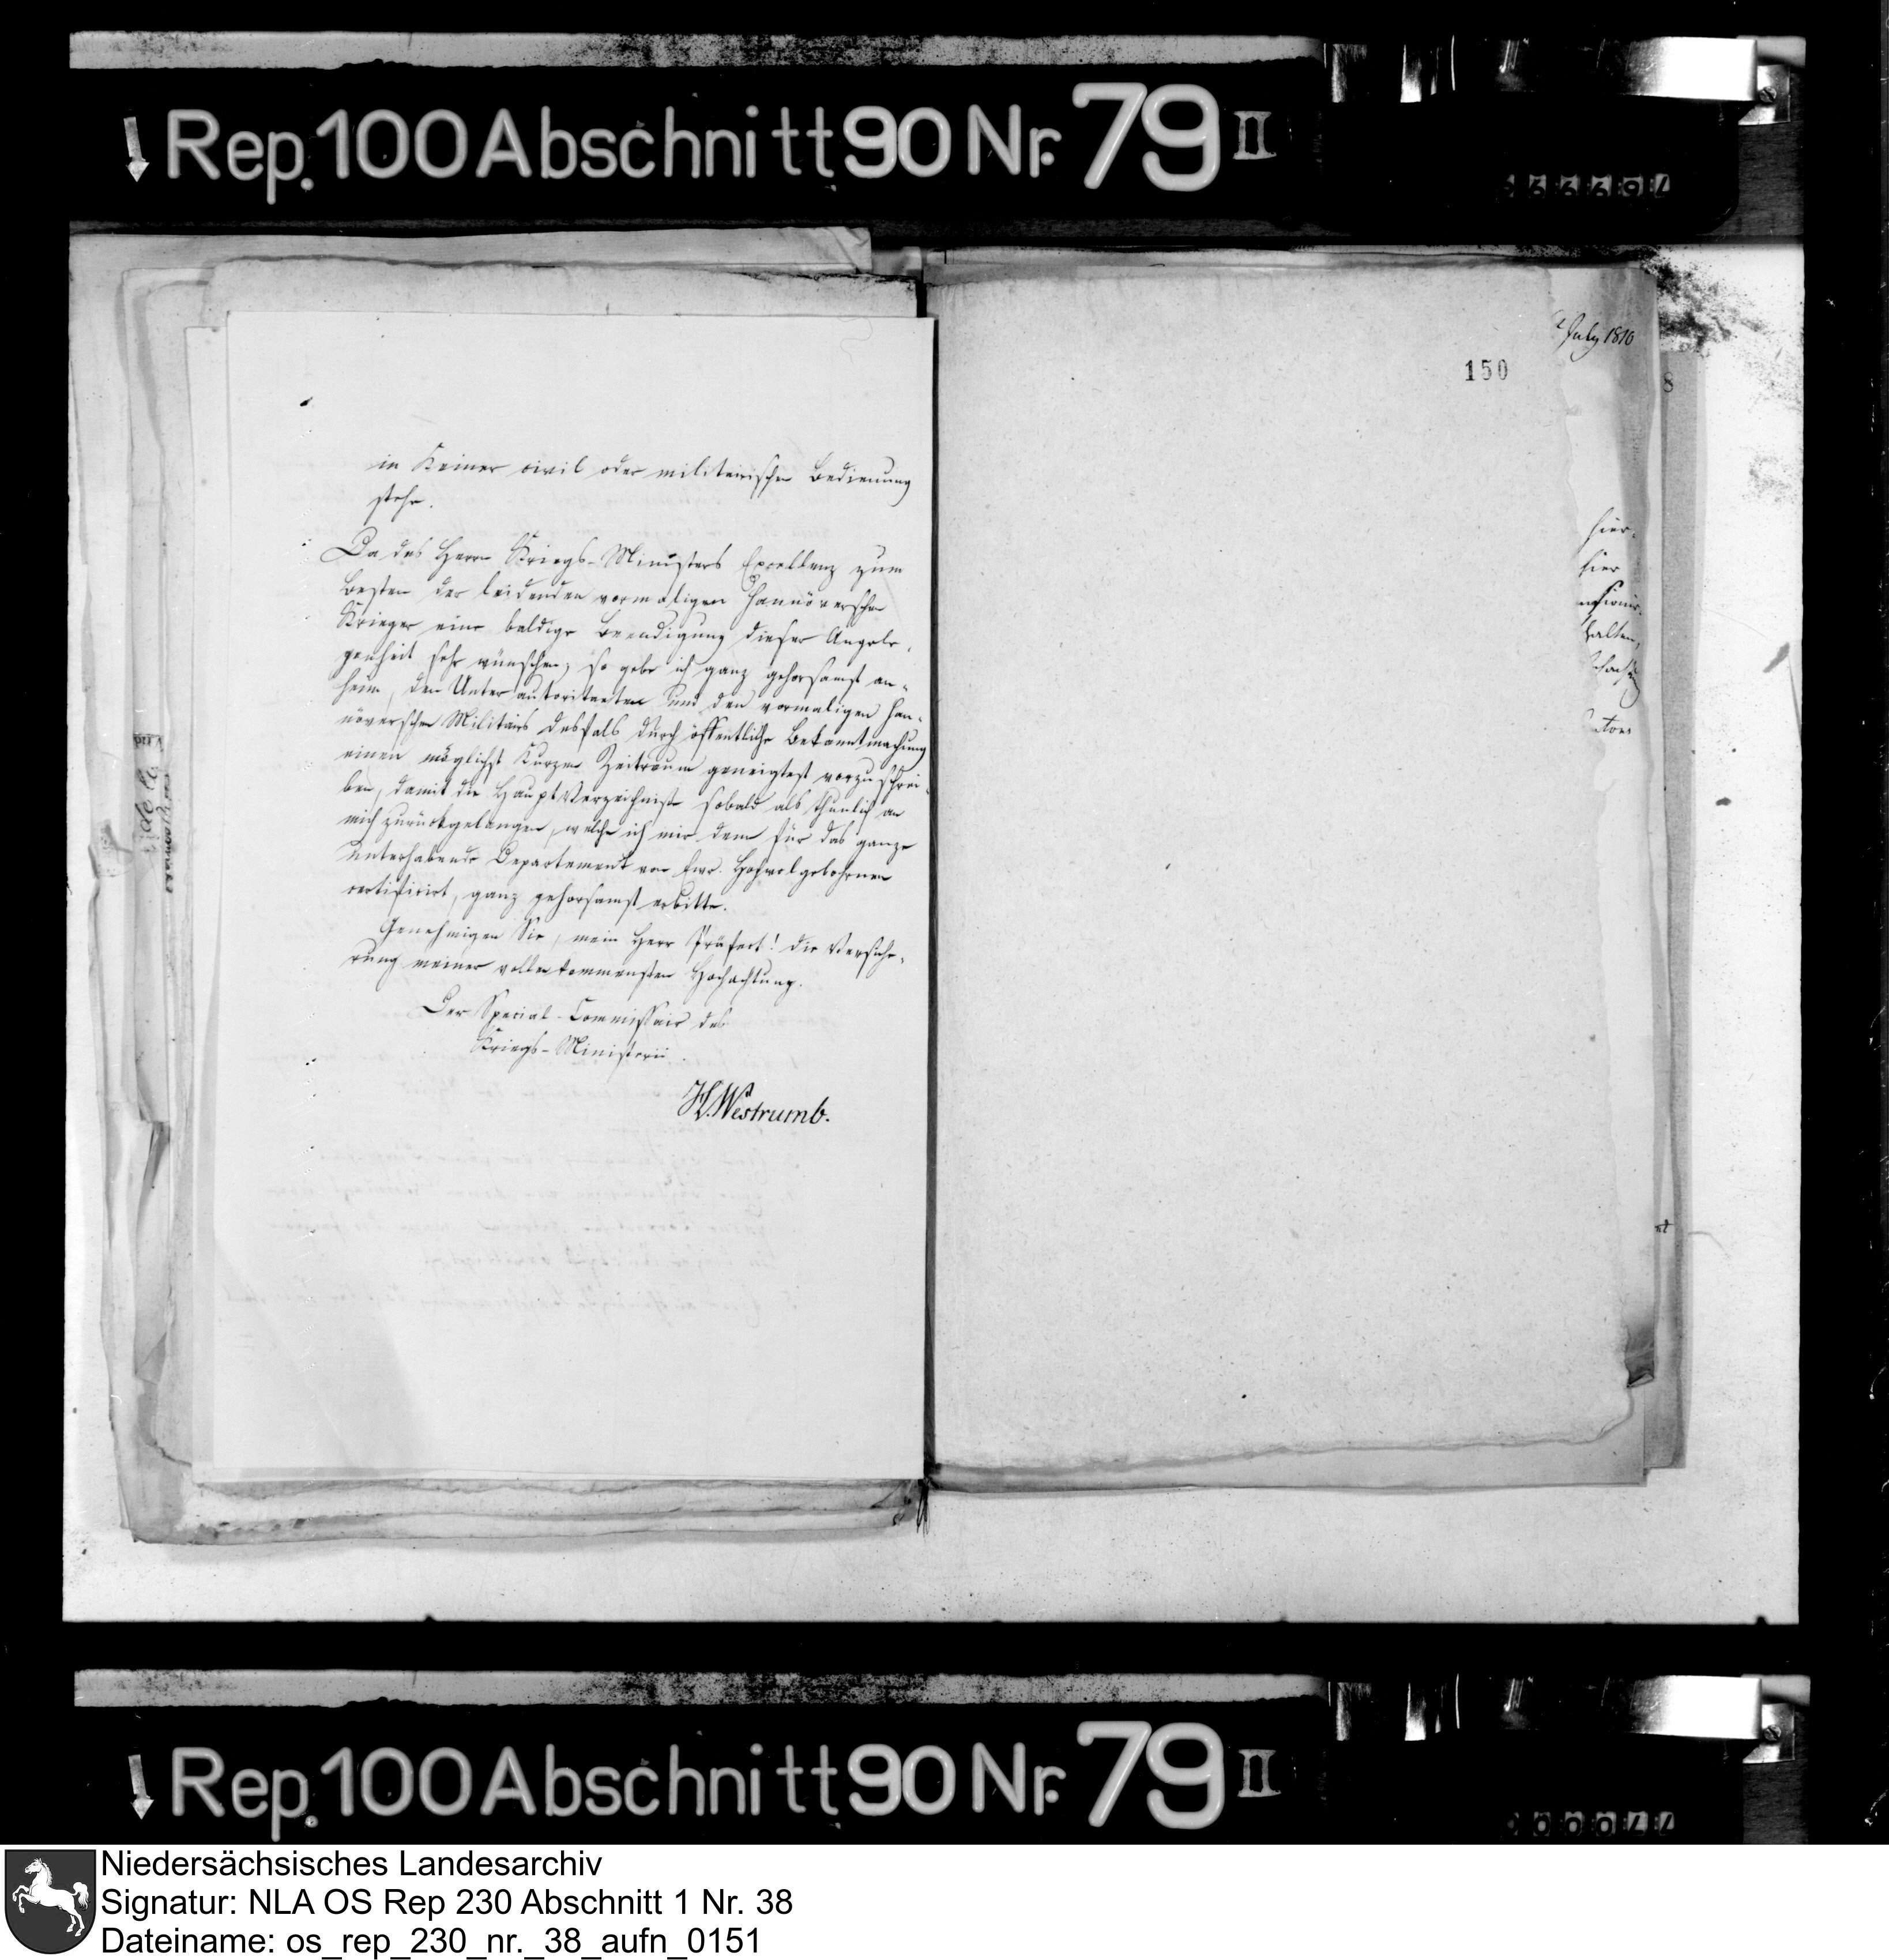 Rep. 100 Abschnitt 90 Nr. 79 II
in Keiner civil oder militairischen Bedienung
stehe.
Da des Herrn Kriegs-Ministers Excellenz zum
Besten der leidenden vormaligen Hannöverschen
Krieger eine baldige Beendigung dieser Angele-
genheit sehr wünschen, so gebe ich ganz gehorsamst an-
heim, den Unterautoritaeten und den vormaligen Han-
növerschen Militairs desfals durch öffentliche Bekanntmachung
einen möglichst Kurzen Zeitraum geneigtest vorzuschrei-
ben, damit die HauptVerzeichniße sobald als thunlich an
mich zurückgelangen, welche ich mir dem für das ganze
unterhabende Departement von Ewr. Hochwolgebohrnen
certificirt, ganz gehorsamst erbitte.
Genehmigen Sie, mein Herr Präfect! die Versiche-
rung meiner vollenkommensten Hochachtung.
Der Special-Commissair des
Kriegs-Ministerii.
H. Westrumb.
July 1810
150
8
hier-
hier
halten,
Rep. 100 Abschnitt 90 Nr. 79 II
Niedersächsisches Landesarchiv
Signatur: NLA OS Rep 230 Abschnitt 1 Nr. 38
Dateiname: os_rep_230_nr._38_aufn_0151